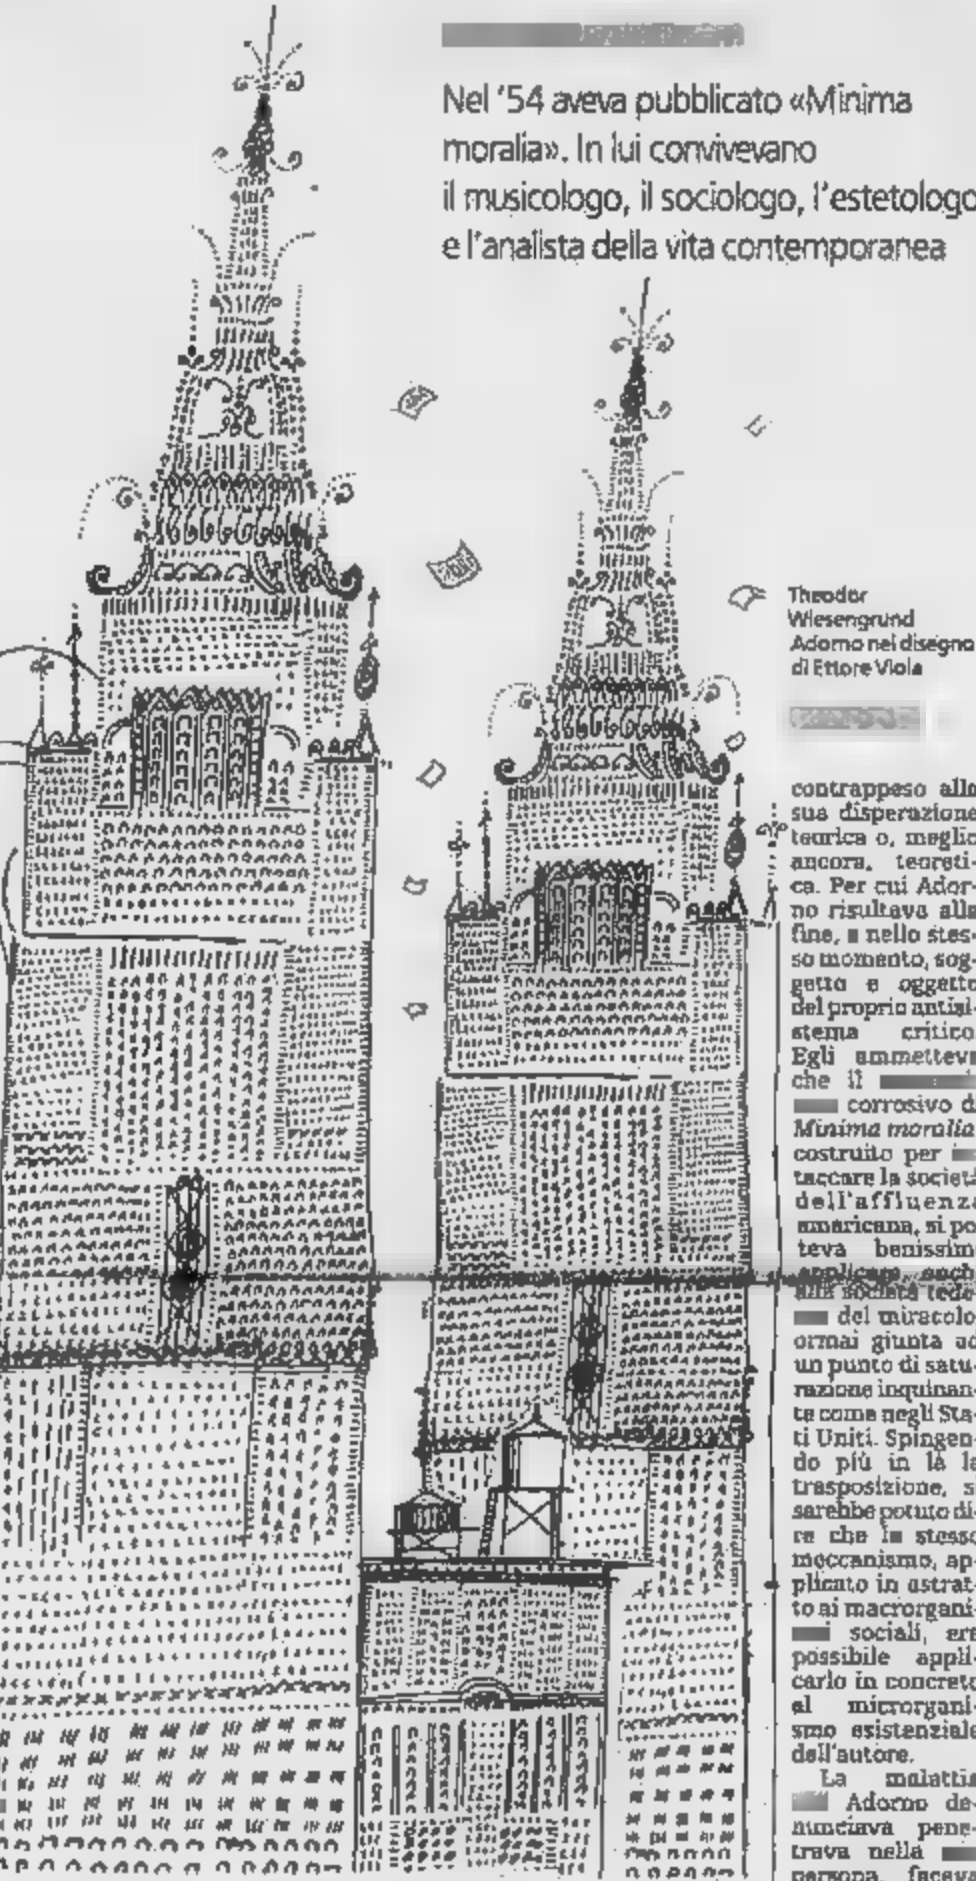 Nel '54 aveva pubblicato «Minima
moralia». In lui convivevano
il musicologo, il sociologo, l'estetologo
e l'analista della vita contemporanea
Theodor
Wiesengrund
Adorno nel disegno
di Ettore Viola
contrappeso alla
sua disperazione
teorica o, meglio
ancora, teoreti-
ca. Per cui Ador-
no risultava alla
fine, e nello stes-
so momento, sog-
getto e oggetto
del proprio antisi-
stema critico.
Egli ammetteva
che il
corrosivo di
Minima moralia
costruito per
taccare la società
dell'affluenza
americana, si po
teva benissim
applicare anch
alla società tede-
del miracolo
ormai giunta ad
un punto di satu-
razione inquinan-
te come negli Sta-
ti Uniti. Spingen-
do più in là la
trasposizione, si
sarebbe potuto di-
re che lo stesso
meccanismo, ap-
plicato in astrat-
to ai macrorgani-
sociali, era
possibile appli-
carlo in concreto
al microrgani-
smo esistenziale
dell'autore.
La malattia
Adorno de-
nunciava pene-
trava nella
persona, faceva